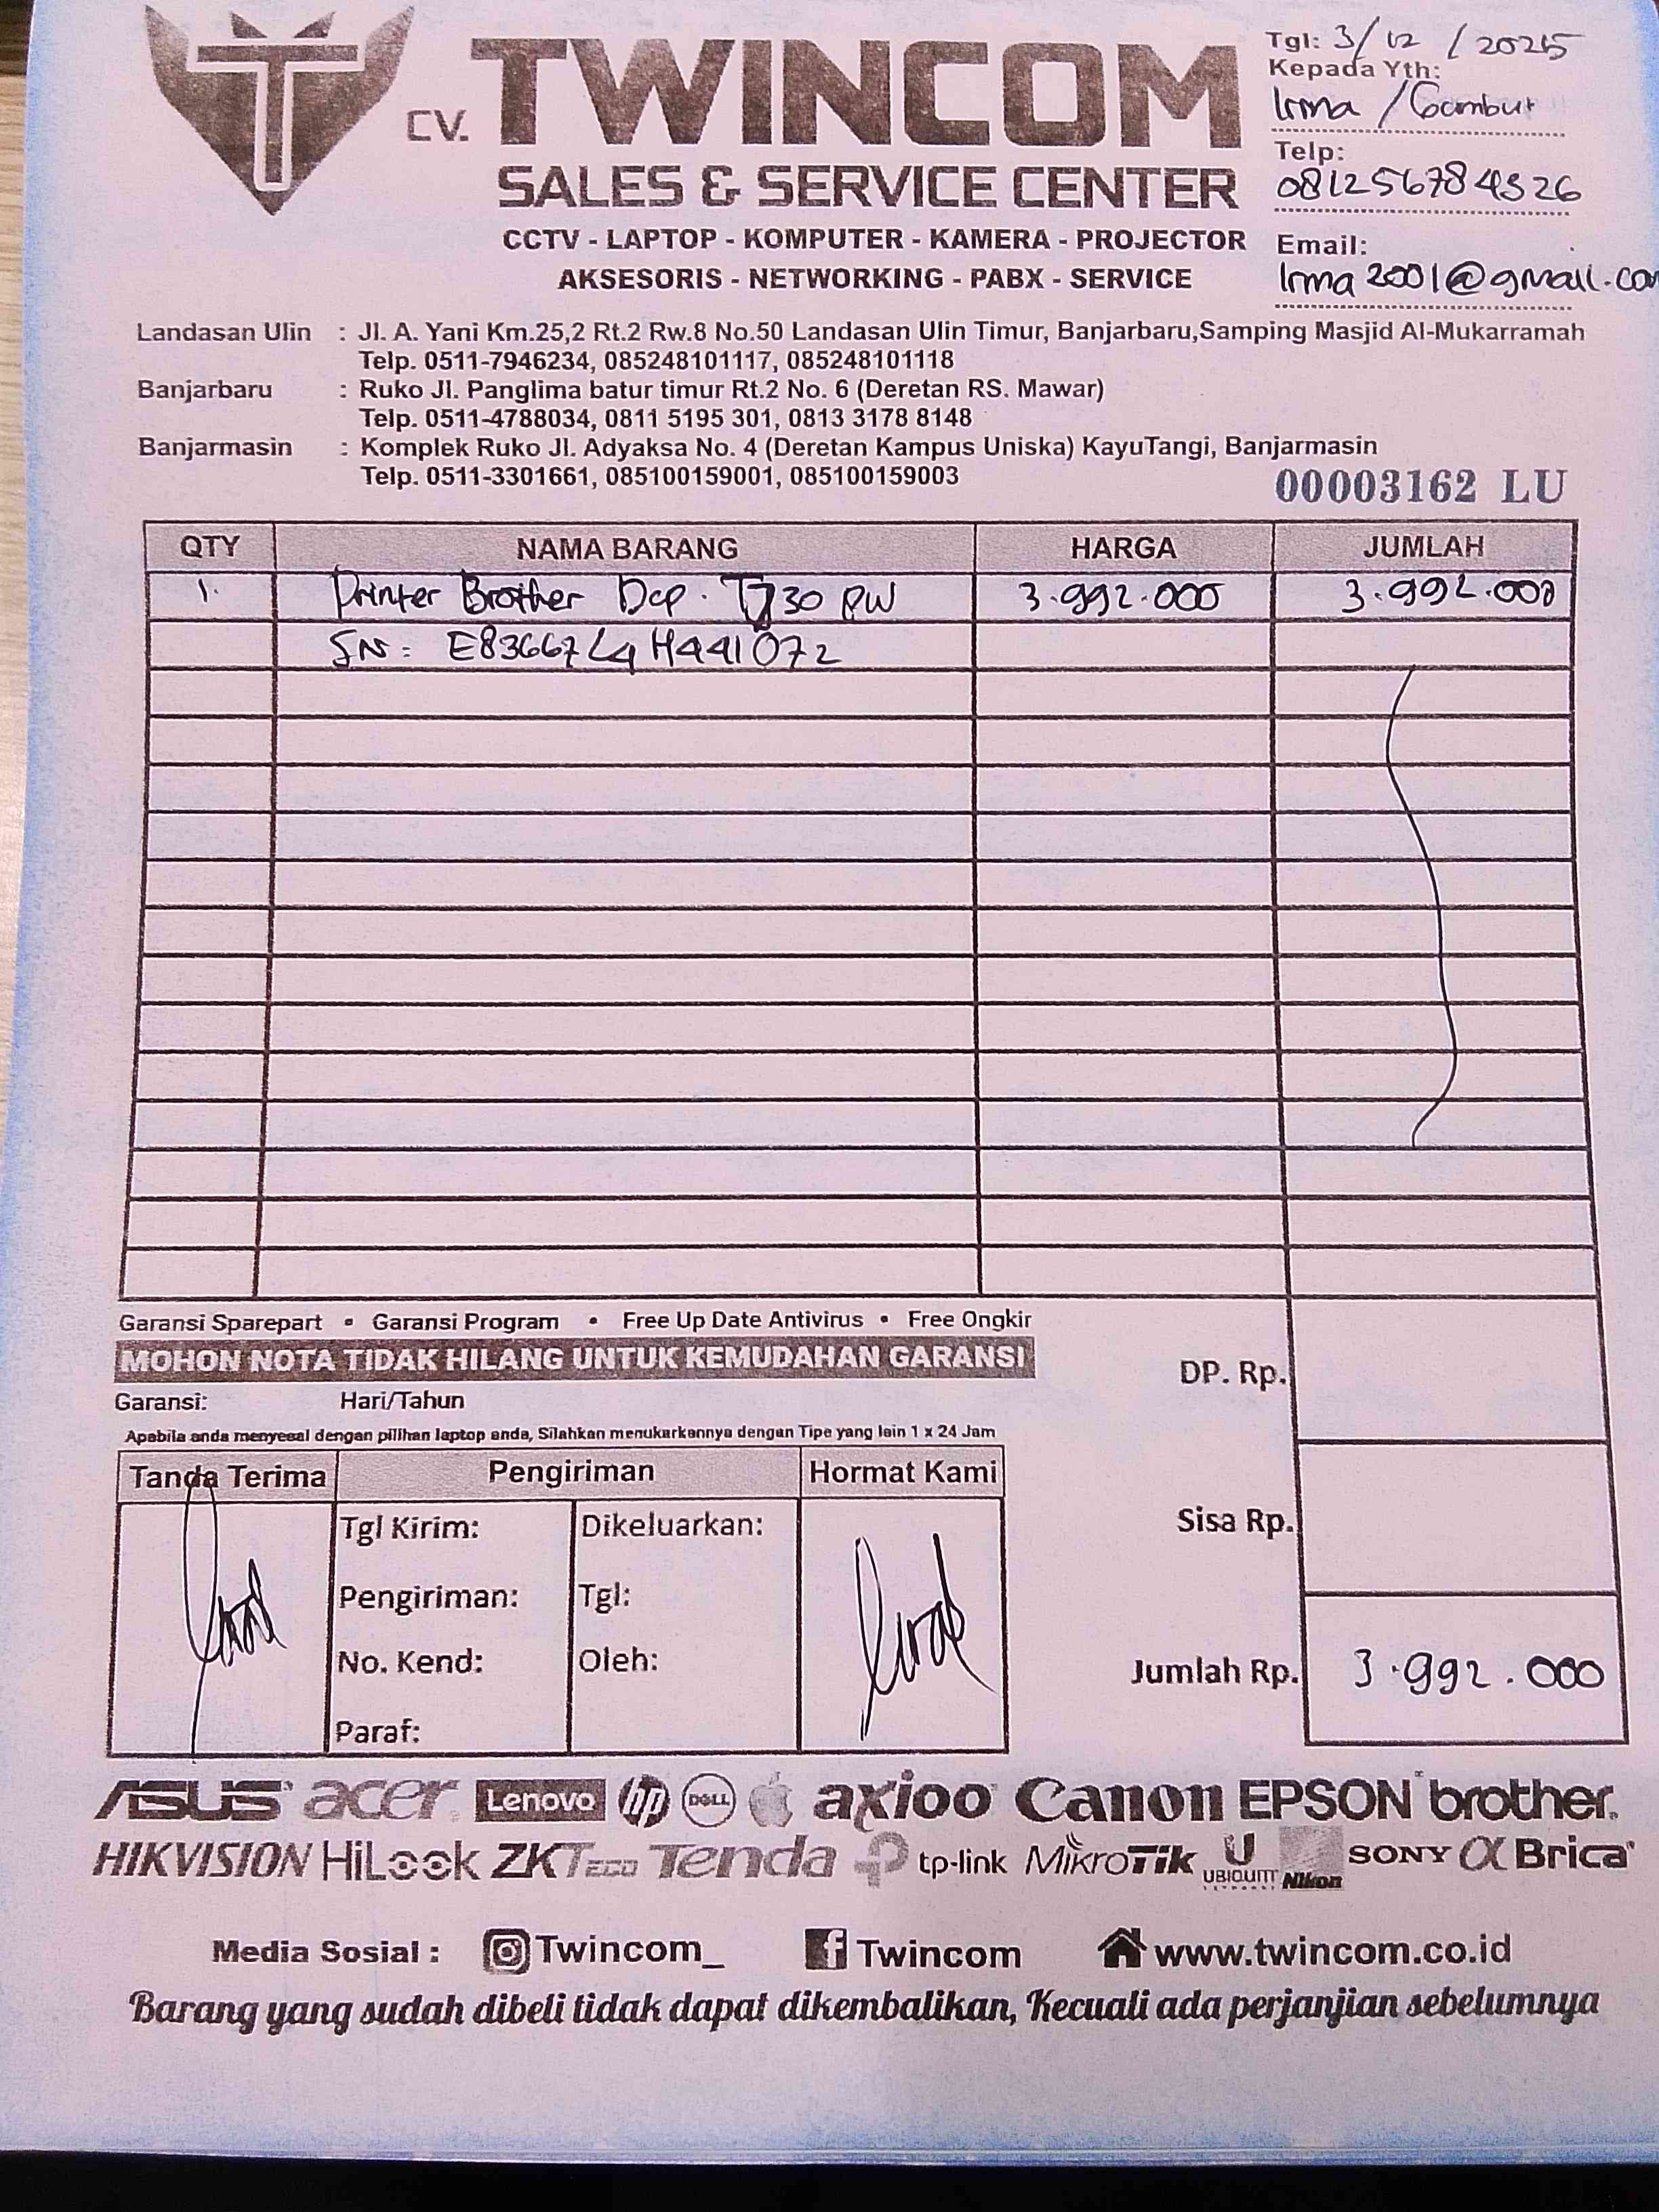 CV. TWINCOM
SALES & SERVICE CENTER
CCTV - LAPTOP - KOMPUTER - KAMERA - PROJECTOR
AKSESORIS - NETWORKING - PABX - SERVICE
Tgl: 3/12/2025
Kepada Yth:
Irma / Gambut
Telp:
081256784326
Email:
Irma2001@gmail.com
Landasan Ulin : Jl. A. Yani Km.25,2 Rt.2 Rw.8 No.50 Landasan Ulin Timur, Banjarbaru,Samping Masjid Al-Mukarramah
Telp. 0511-7946234, 085248101117, 085248101118
Banjarbaru : Ruko Jl. Panglima batur timur Rt.2 No. 6 (Deretan RS. Mawar)
Telp. 0511-4788034, 0811 5195 301, 0813 3178 8148
Banjarmasin : Komplek Ruko Jl. Adyaksa No. 4 (Deretan Kampus Uniska) KayuTangi, Banjarmasin
Telp. 0511-3301661, 085100159001, 085100159003
00003162 LU
QTY NAMA BARANG HARGA JUMLAH
1. Printer Brother Dcp. T730 DW 3.992.000 3.992.000
SN: E83667L4H441072
Garansi Sparepart • Garansi Program • Free Up Date Antivirus • Free Ongkir
MOHON NOTA TIDAK HILANG UNTUK KEMUDAHAN GARANSI
Garansi: Hari/Tahun
Apabila anda menyesal dengan pilihan laptop anda, Silahkan menukarkannya dengan Tipe yang lain 1 x 24 Jam
DP. Rp.
Sisa Rp.
Jumlah Rp. 3.992.000
Tanda Terima Pengiriman Hormat Kami
Tgl Kirim: Dikeluarkan:
Pengiriman: Tgl:
No. Kend: Oleh:
Paraf:
ASUS acer Lenovo hp DELL axioo Canon EPSON brother
HIKVISION HiLook ZKTECO Tenda tp-link MikroTik UBIQUITI NETWORKS Nikon SONY α Brica
Media Sosial : Twincom_ Twincom www.twincom.co.id
Barang yang sudah dibeli tidak dapat dikembalikan, Kecuali ada perjanjian sebelumnya